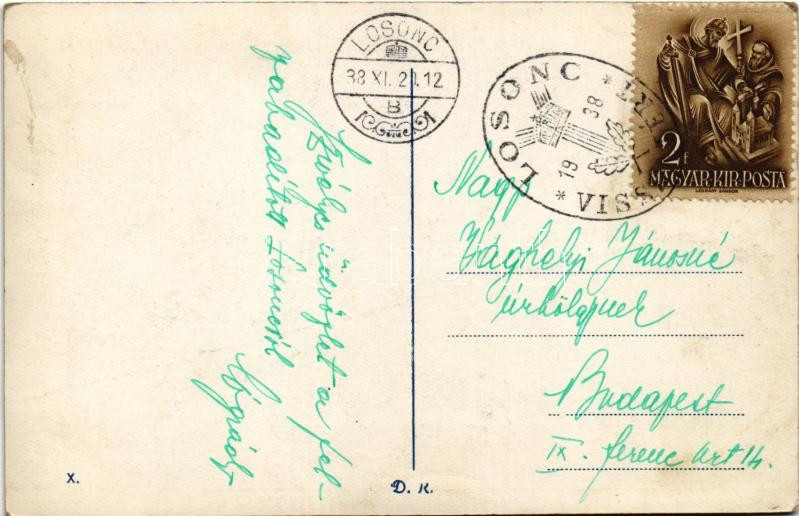 LOSONC
38 XI. 20. 12
B
LOSONC
VISSZATÉRT
1938
2 F
MAGYAR·KIR·POSTA
LÉGRÁDY SÁNDOR
Szívélyes üdvözlet a fel-
szabadított Losoncról
Nagys
Vághelyi Jánosné
úrhölgynek
Budapest
IX. Ferenc krt 14.
X.
D. K.